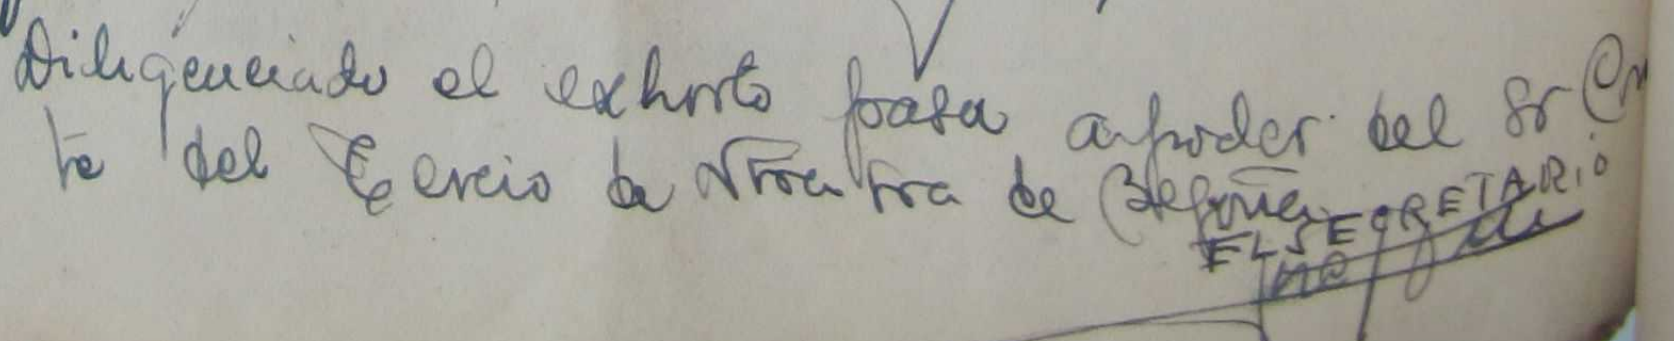 Diligenciado el exhorto pasa a poder del Sr Cm
te del Tercio de Ntra Sra de Begoña
EL SECRETARIO